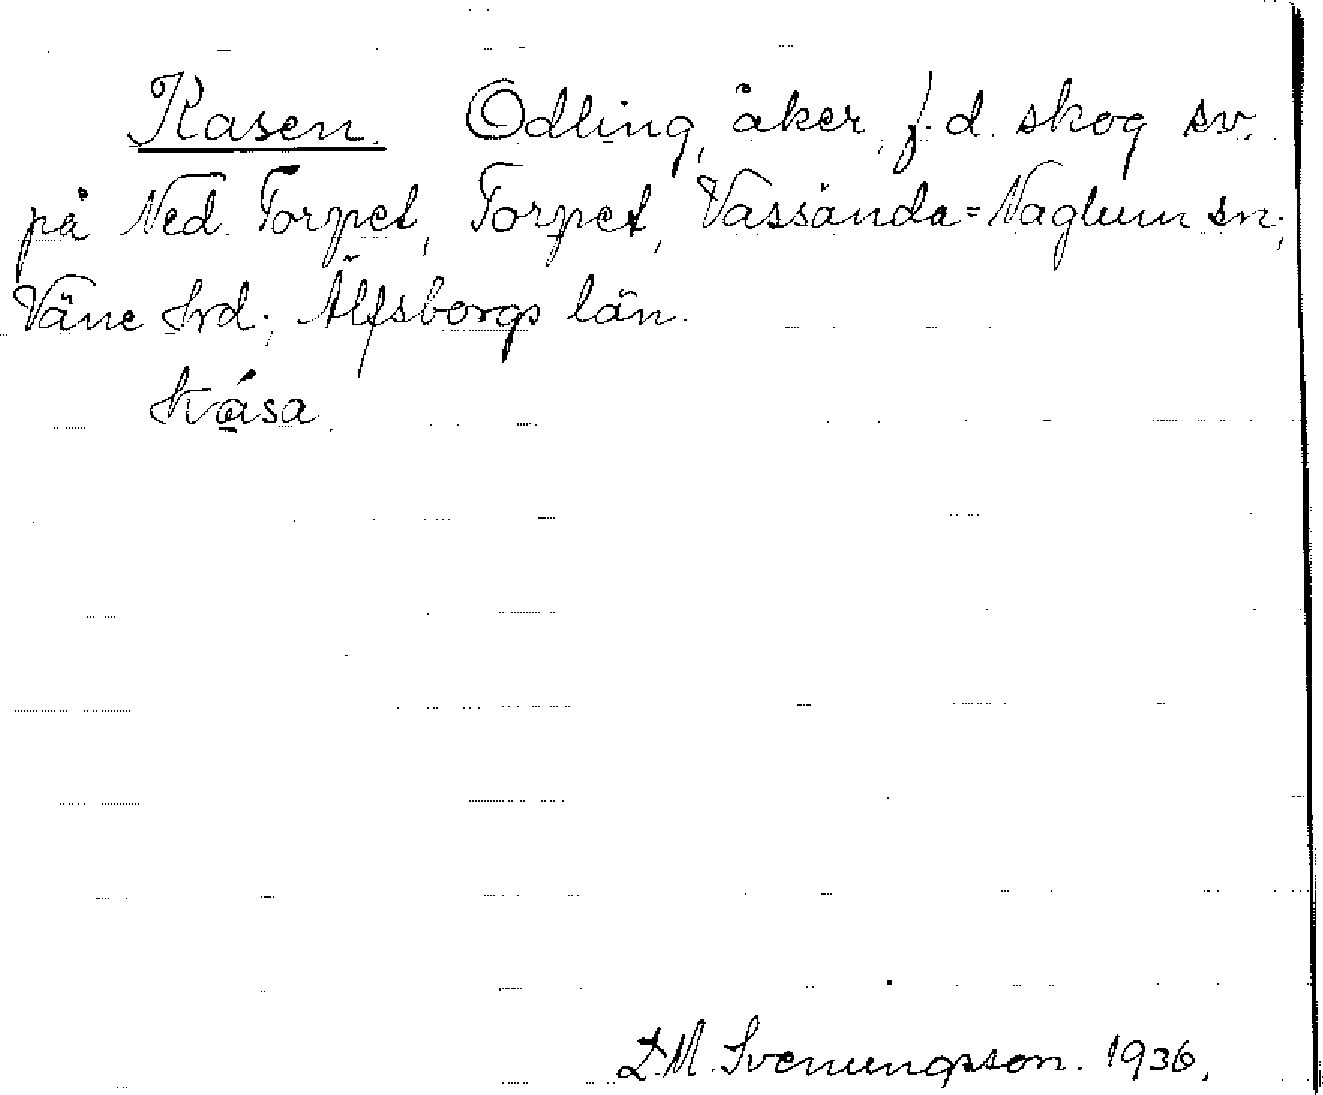 Kasen. Odling, åker, f.d. skog sv.
på Ned. Torpet, Torpet, Vassända=Naglum sn;
Väne hrd; Älfsborgs län.
kása.
D.M. Svenungsson. 1936.